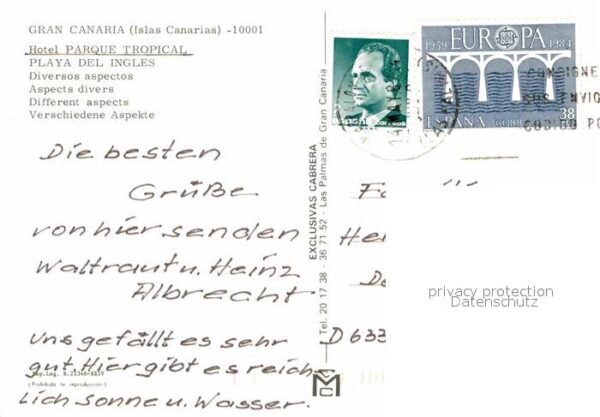 GRAN CANARIA (Islas Canarias) -10001
Hotel PARQUE TROPICAL
PLAYA DEL INGLES
Diversos aspectos
Aspects divers
Different aspects
Verschiedene Aspekte
Die besten
Grüße
von hier senden
Waltraut u. Heinz
Albrecht
Uns gefällt es sehr
gut Hier gibt es reich
lich Sonne u. Wasser.
Dep. Leg. B.
(Prohibida la reproducción)
EXCLUSIVAS CABRERA
Tel. 20 17 38 - 36 71 52 - Las Palmas de Gran Canaria
1959 EUROPA 1984
ESPAÑA CORREOS 38
CONSIGNE
SUS ENVIO
CODIGO PO
D 633
privacy protection
Datenschutz